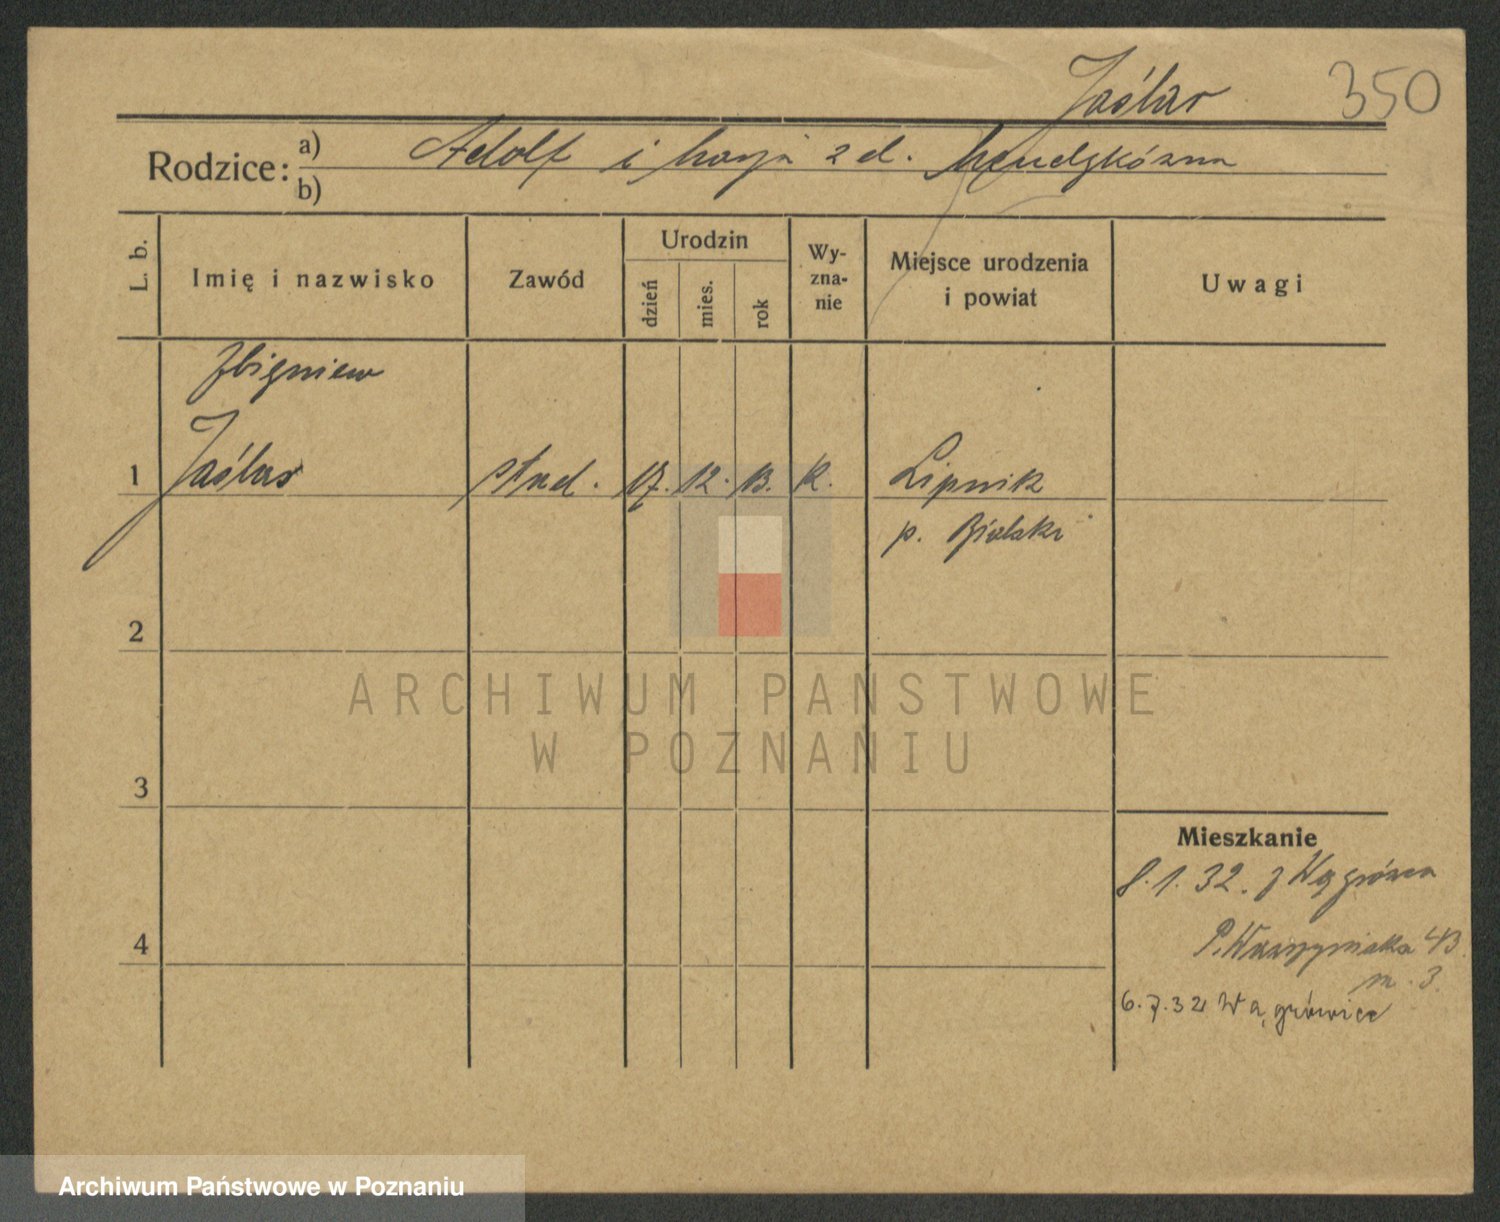 Jaślar 350
Rodzice: a) Adolf i z d.
b)
L. b. Imię i nazwisko Zawód Urodzin dzień mies. rok Wy-zna-nie Miejsce urodzenia i powiat Uwagi
Zbigniew
1 Jaślar stud. 17. 12. 13. k. Lipnik
p. Bielski
2
ARCHIWUM PAŃSTWOWE
W POZNANIU
3
Mieszkanie
8.1.32. z Wągrówca
4
P. Wawrzyniaka 43
m. 3.
6.7.32 Wągrówiec
Archiwum Państwowe w Poznaniu